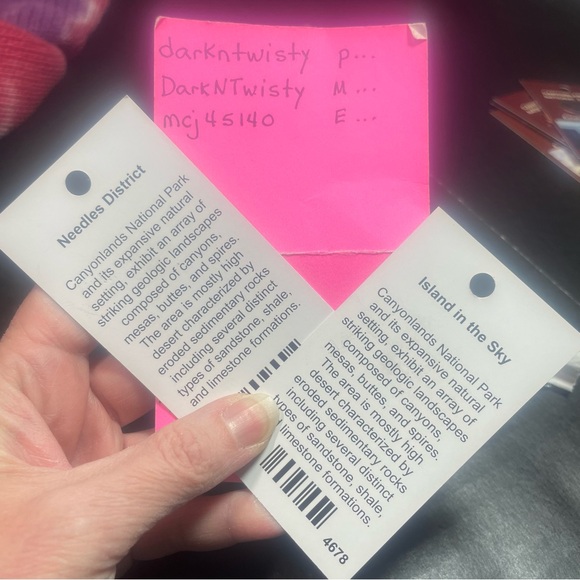 darkntwisty p...
DarkNTwisty M...
mcj45140 E...
Needles District
Canyonlands National Park
and its expansive natural
setting, exhibit an array of
striking geologic landscapes
composed of canyons,
mesas, buttes, and spires.
The area is mostly high
desert characterized by
eroded sedimentary rocks
including several distinct
types of sandstone, shale,
and limestone formations.
Island in the Sky
Canyonlands National Park
and its expansive natural
setting, exhibit an array of
striking geologic landscapes
composed of canyons,
mesas, buttes, and spires.
The area is mostly high
desert characterized by
eroded sedimentary rocks
including several distinct
types of sandstone, shale,
limestone formations.
4678